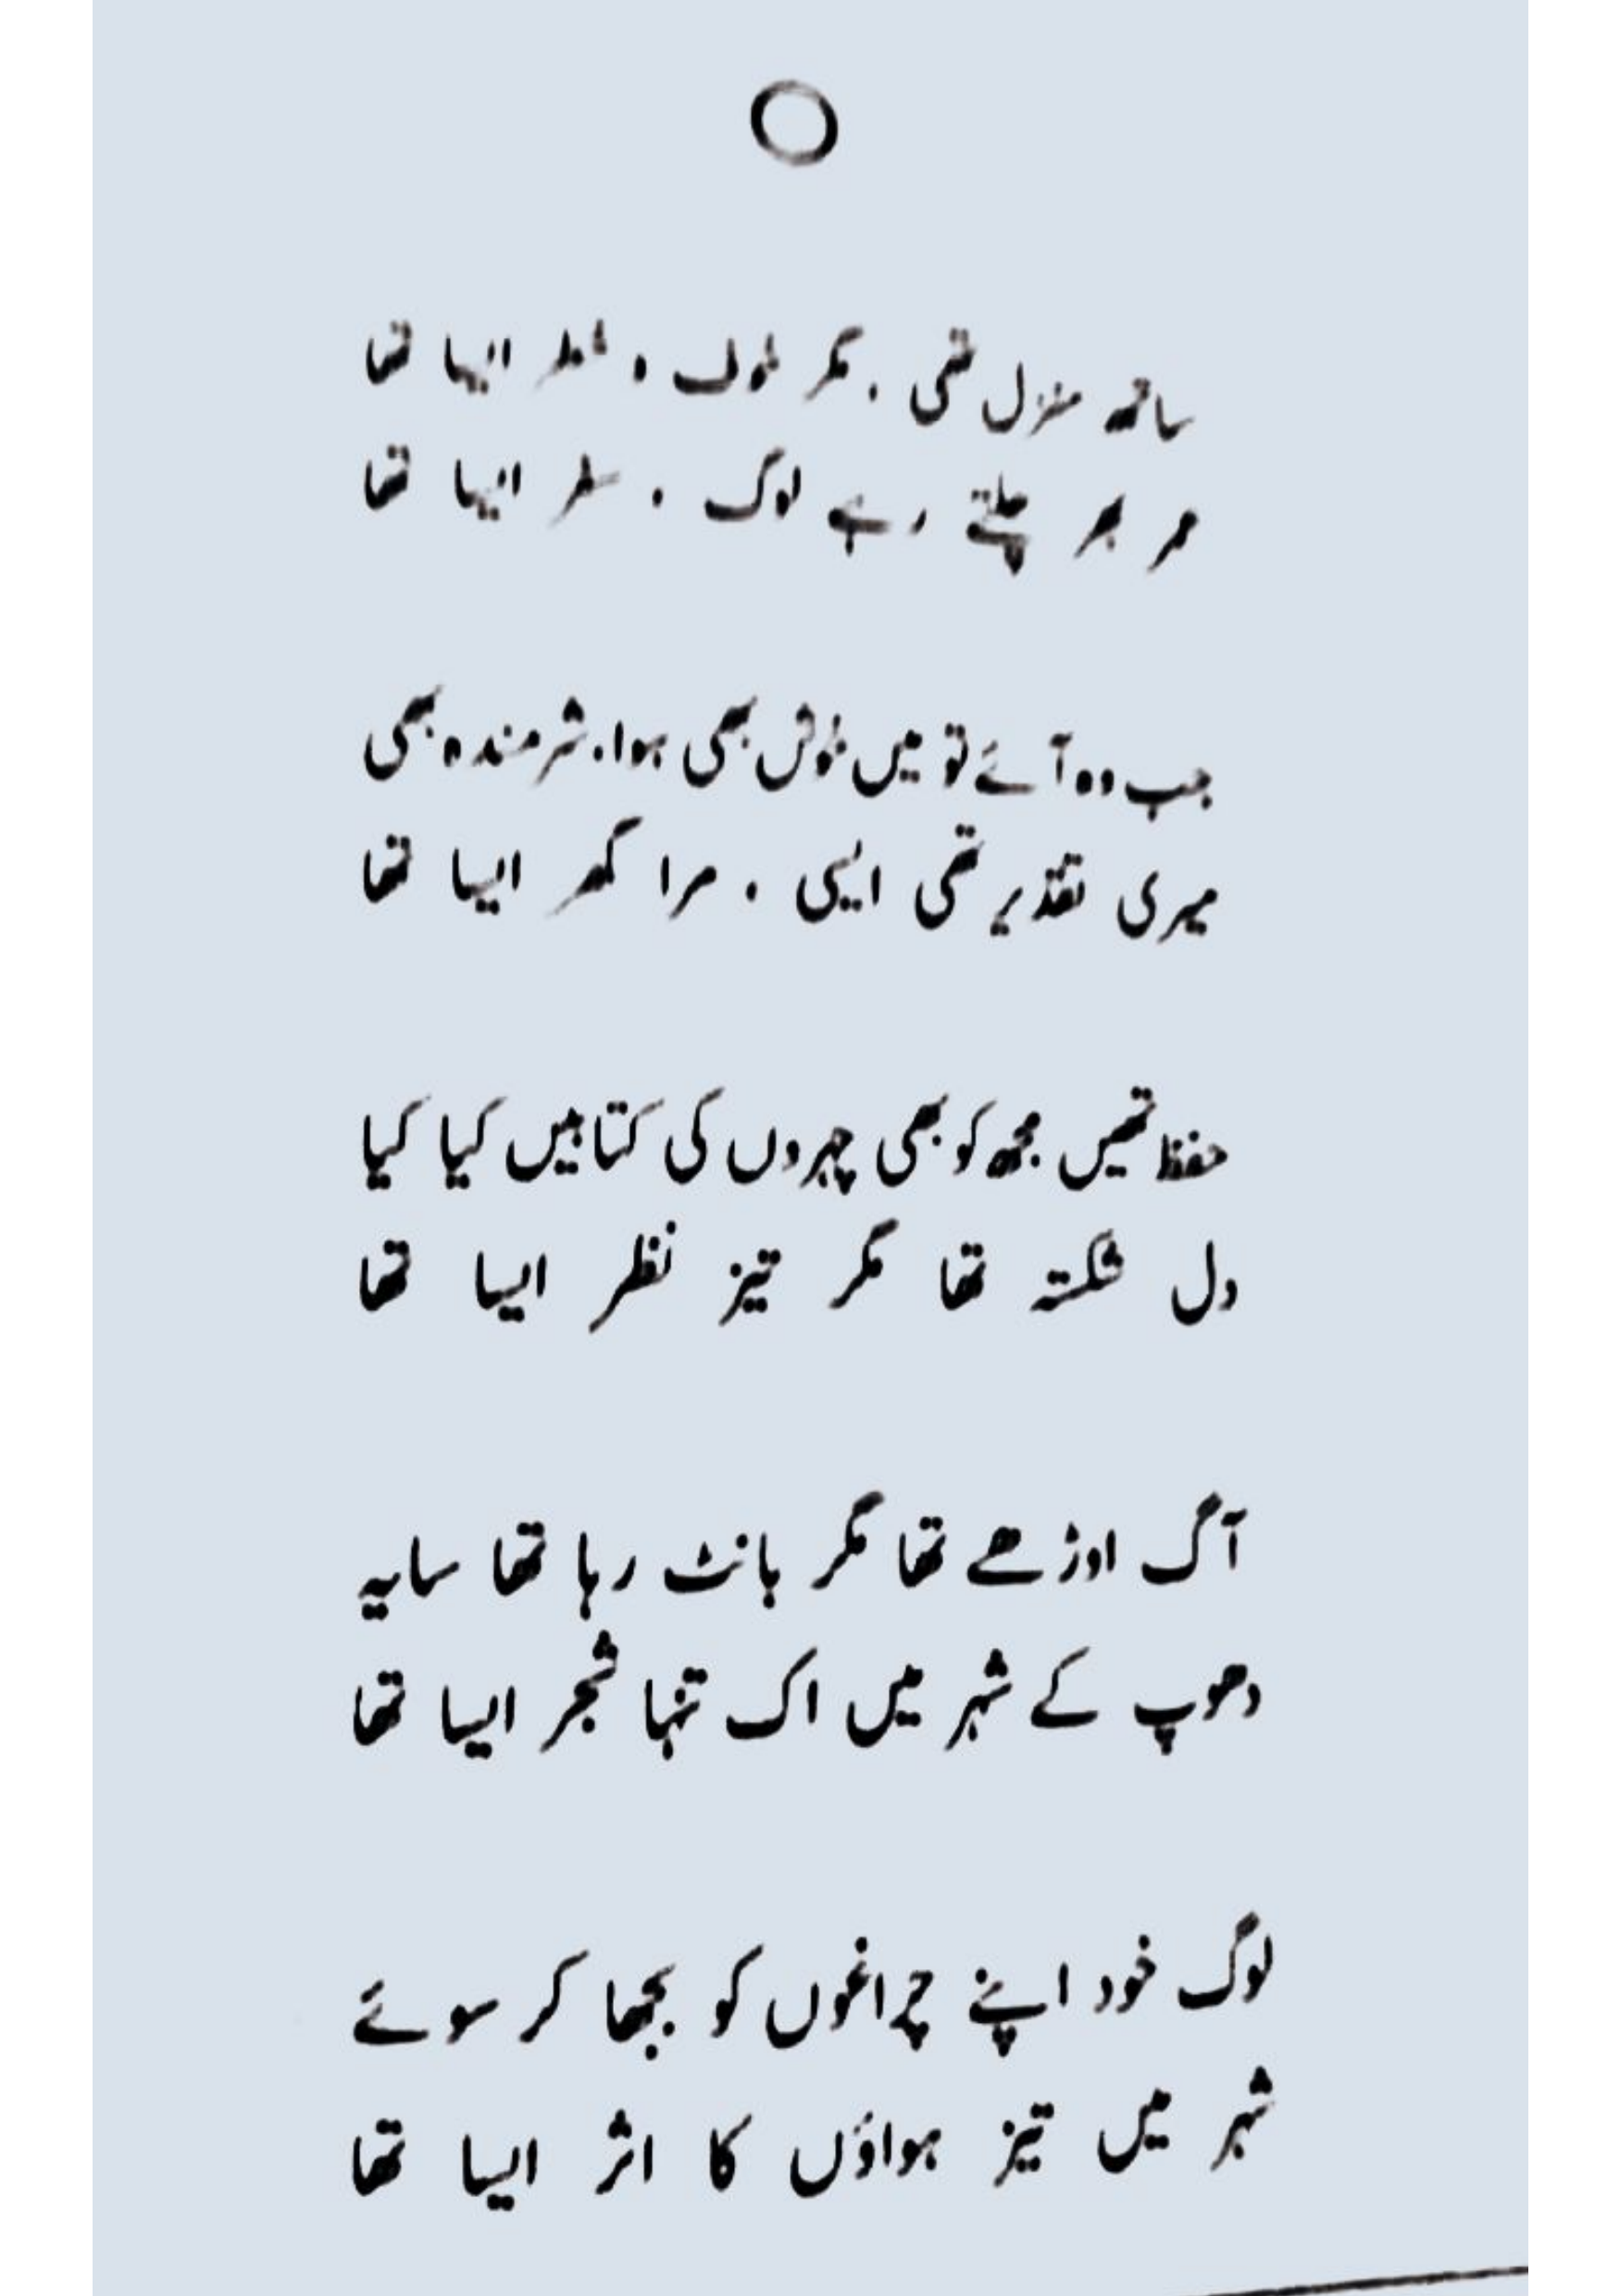 ساتھ منزل تھی ، مگر خوف و خطر ایسا تھا
عمر بھر چلتے رہے لوگ ، سفر ایسا تھا
جب وہ آئے تو میں خوش بھی ہوا ، شرمندہ بھی
میری تقدیر تھی ایسی ، مرا گھر ایسا تھا
حفظ تھیں مجھ کو بھی چہروں کی کتابیں کیا کیا
دل شکستہ تھا مگر تیز نظر ایسا تھا
آگ اوڑھے تھا مگر بانٹ رہا تھا سایہ
دھوپ کے شہر میں اک تنہا شجر ایسا تھا
لوگ خود اپنے چراغوں کو بجھا کر سوئے
شہر میں تیز ہواؤں کا اثر ایسا تھا